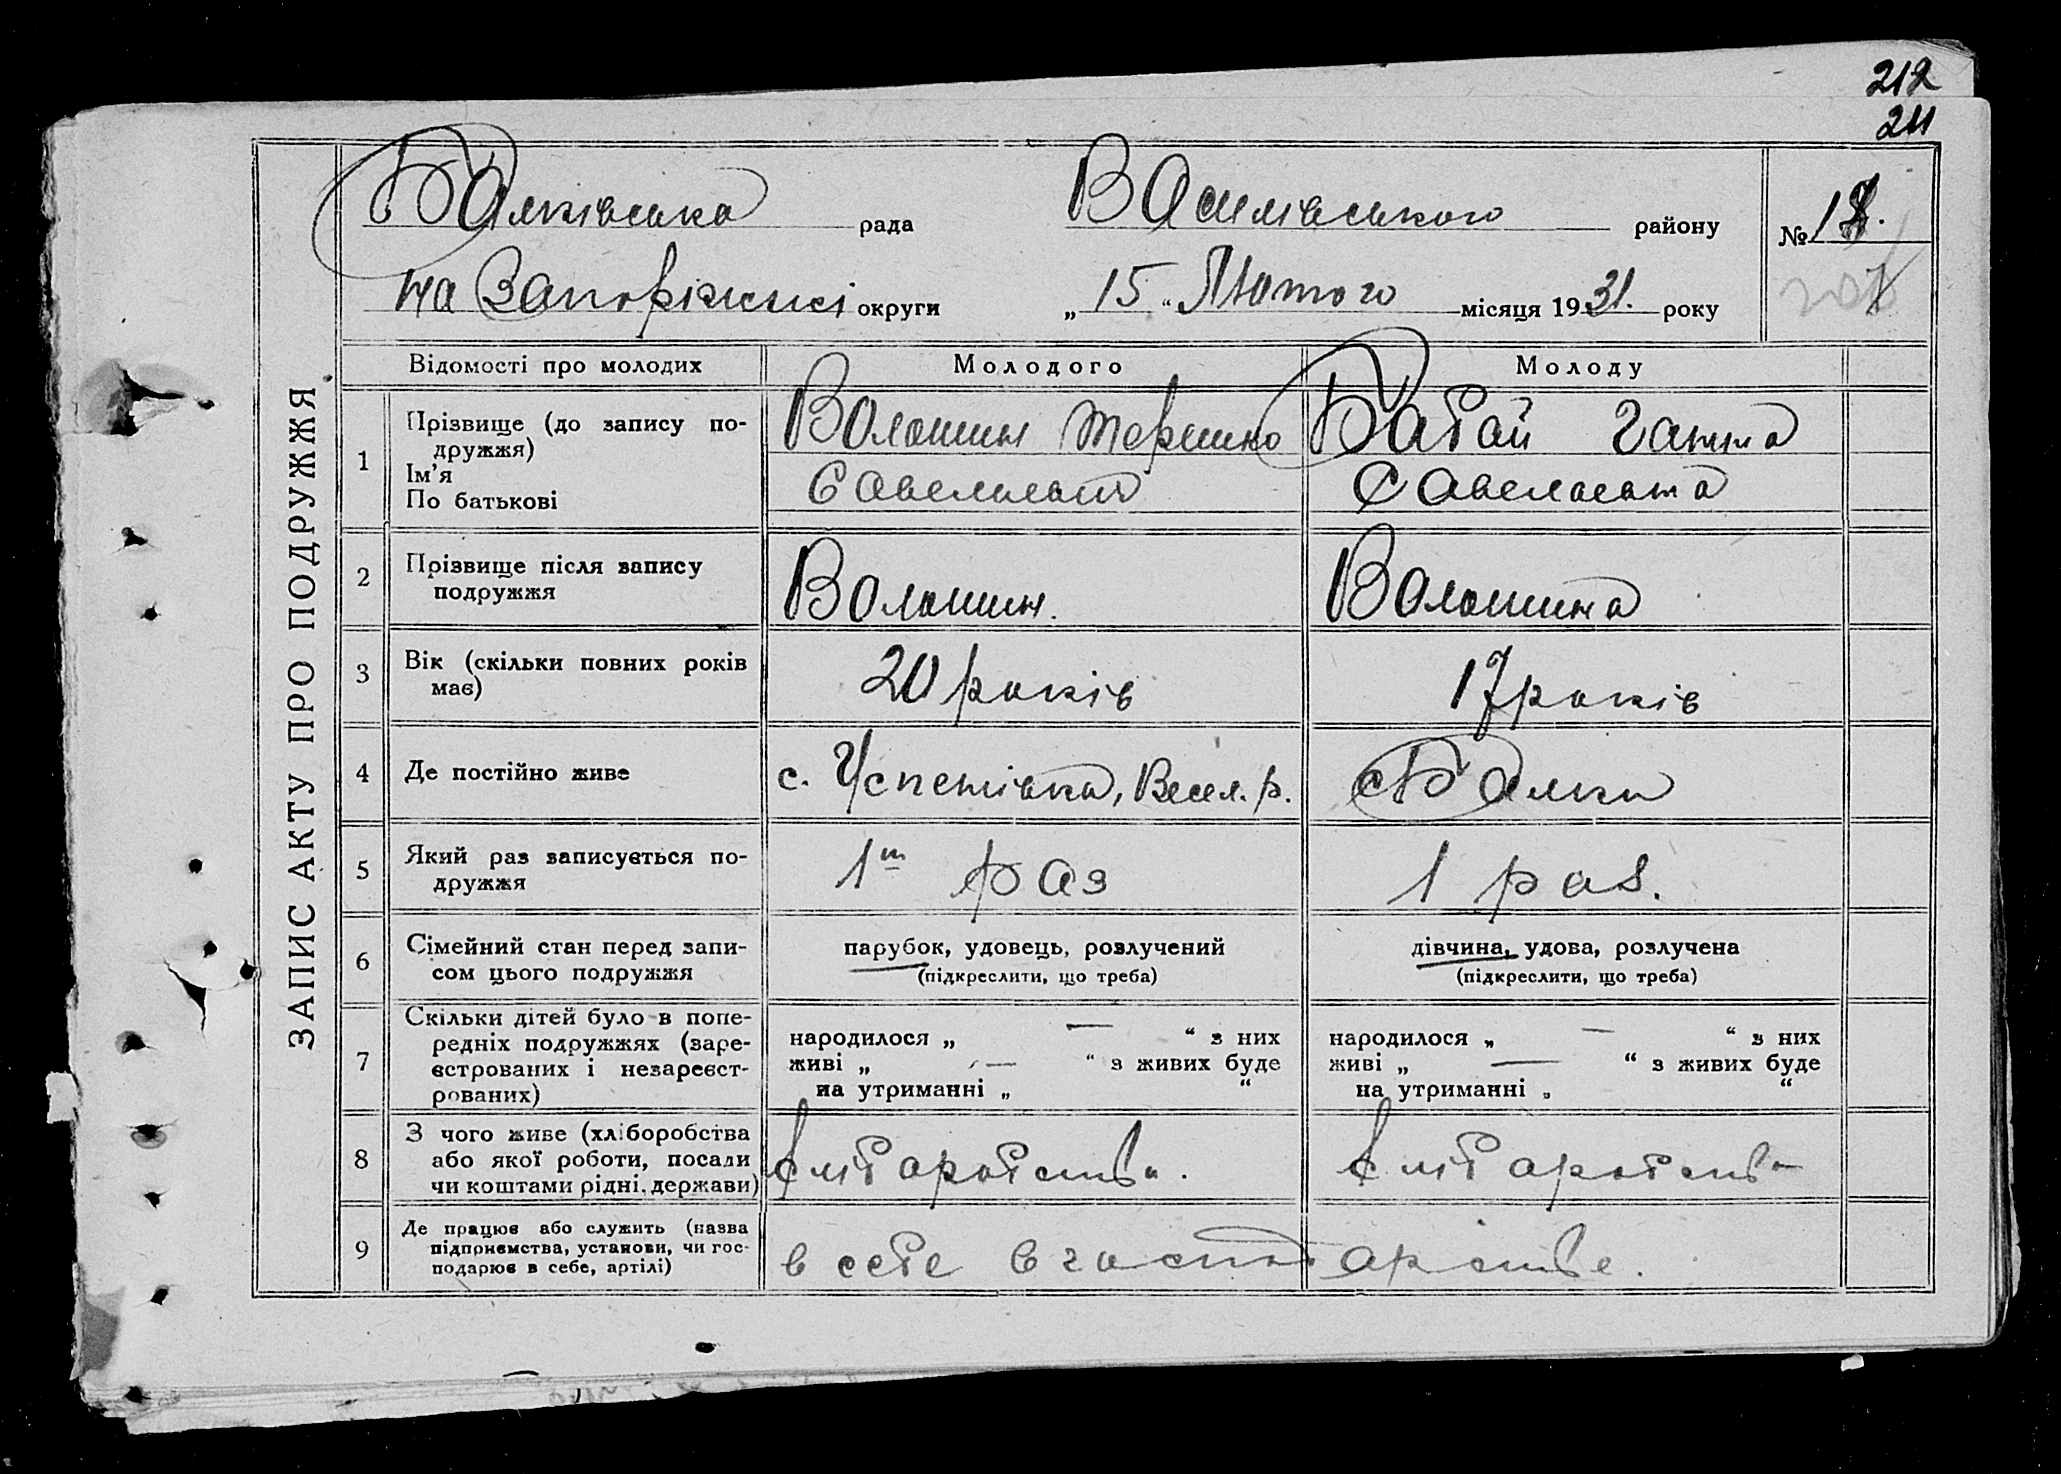 212
211
Балківська рада Василівського району №18.
на Запоріжжі округи „15“ Лютого місяця 1931. року
ЗАПИС АКТУ ПРО ПОДРУЖЖЯ
Відомості про молодих Молодого Молоду
1 Прізвище (до запису по-
дружжя)
Ім'я
По батькові
Волошин Терешко
Савельевич
Бабай Ганна
Савельевна
2 Прізвище після запису
подружжя
Волошин.
Волошина
3 Вік (скільки повних років
має)
20 років
17 років
4 Де постійно живе
с. Успенівка, Весел. р.
с Балки
5 Який раз записується по-
дружжя
1й раз
1 раз.
6 Сімейний стан перед запи-
сом цього подружжя
парубок, удовець, розлучений
(підкреслити, що треба)
дівчина, удова, розлучена
(підкреслити, що треба)
7 Скільки дітей було в попе-
редніх подружжях (заре-
єстрованих і незареєст-
рованих)
народилося „ — “ з них
живі „ — “ з живих буде
на утриманні „ “
народилося „ — “ з них
живі „ — “ з живих буде
на утриманні „ “
8 З чого живе (хліборобства
або якої роботи, посади
чи коштами рідні, держави)
хліборобство.
хліборобство
9 Де працює або служить (назва
підприємства, установи, чи гос-
подарює в себе, артілі)
в себе в господарстве.